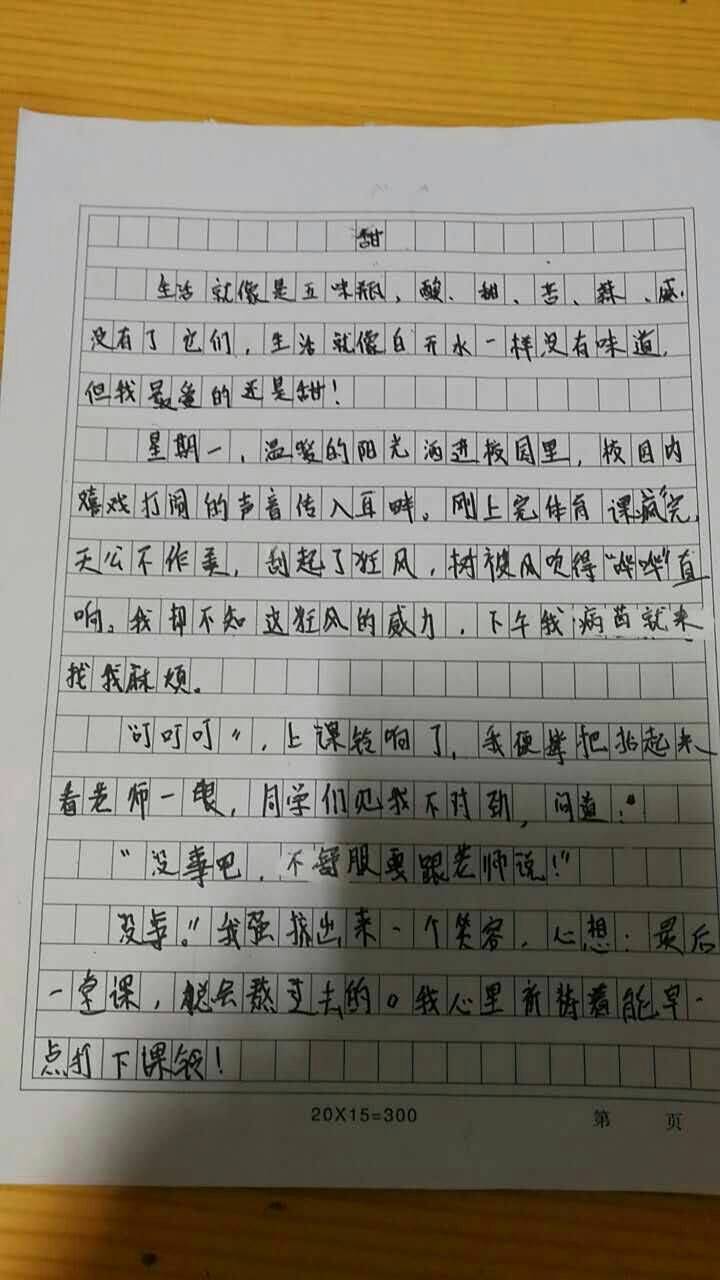 甜
生活就像是五味瓶、酸、甜、苦、辣、咸.
没有了它们，生活就像白开水一样没有味道.
但我最爱的还是甜！
星期一，温暖的阳光洒进校园里，校园内
嬉戏打闹的声音传入耳畔。刚上完体育课疯完,
天公不作美，刮起了狂风，树被风吹得“哗哗”直
响。我却不知这狂风的威力，下午我病苗就来
找我麻烦。
“叮叮叮”，上课铃响了，我便撑把抬起来
看老师一眼，同学们见我不对劲，问道：“
“没事吧，不舒服要跟老师说！”
没事。”我强挤出来一个笑容，心想：最后
一堂课，总会熬过去的。我心里祈祷着能早一
点打下课铃！
20X15=300
第 页